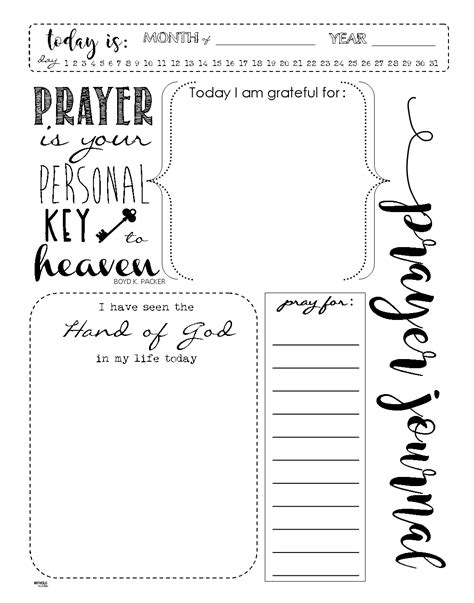 today is: MONTH of YEAR
day 1 2 3 4 5 6 7 8 9 10 11 12 13 14 15 16 17 18 19 20 21 22 23 24 25 26 27 28 29 30 31
PRAYER
is your
PERSONAL
KEY to
heaven
BOYD K. PACKER
Today I am grateful for:
prayer journal
I have seen the
Hand of God
in my life today
pray for: